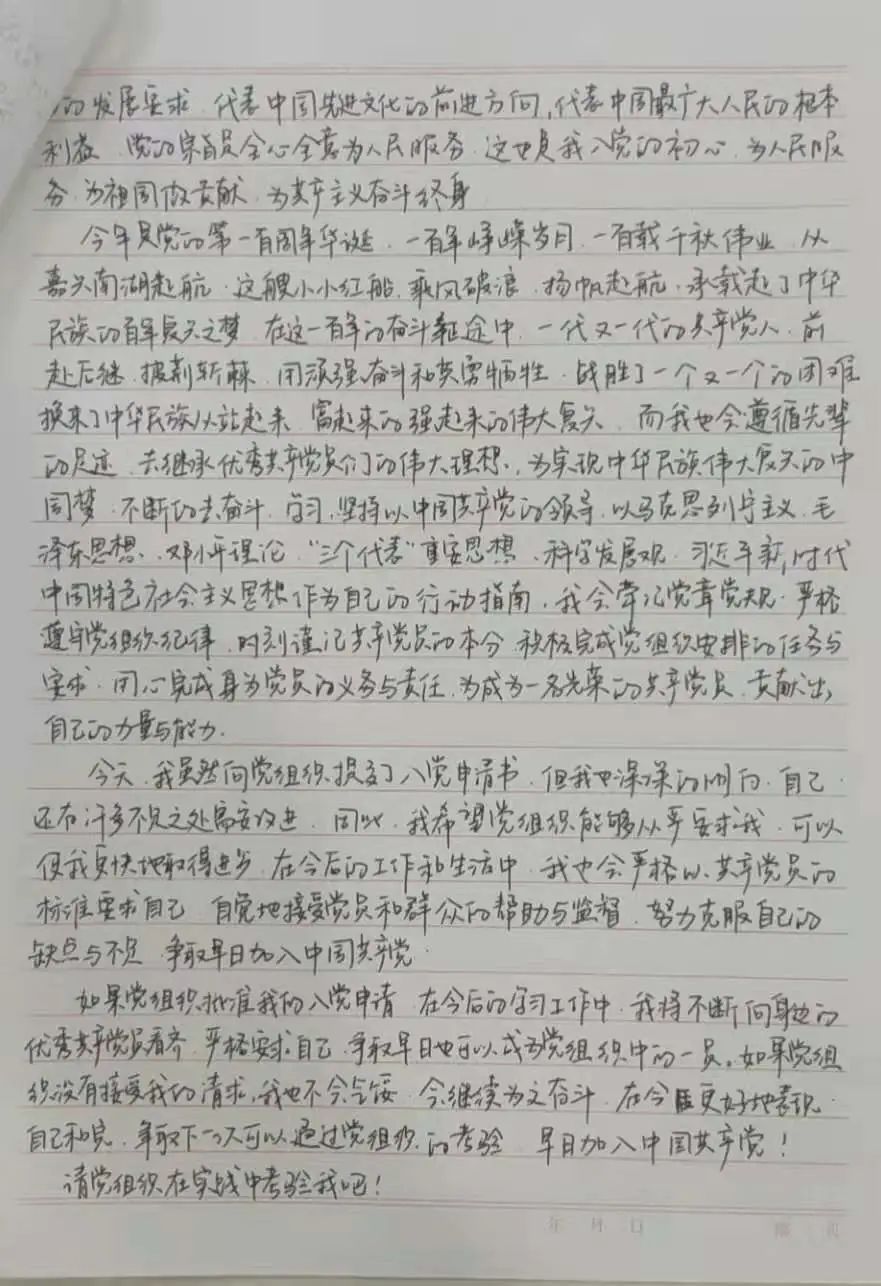 的发展要求,代表中国先进文化的前进方向,代表中国最广大人民的根本
利益,党的宗旨是全心全意为人民服务,这也是我入党的初心,为人民服
务,为祖国做贡献,为共产主义奋斗终身
今年是党的第一百周年华诞,一百年峥嵘岁月,一百载千秋伟业,从
嘉兴南湖起航,这艘小小红船,乘风破浪,扬帆起航,承载起了中华
民族的百年复兴之梦,在这一百年的奋斗征途中,一代又一代的共产党人,前
赴后继,披荆斩棘,用顽强奋斗和英勇牺牲,战胜了一个又一个的困难
换来了中华民族从站起来,富起来的强起来的伟大复兴,而我也会遵循先辈
的足迹,去继承优秀共产党员们的伟大理想,为实现中华民族伟大复兴的中
国梦,不断的去奋斗,学习,坚持以中国共产党的领导,以马克思列宁主义,毛
泽东思想、邓小平理论,“三个代表”重要思想、科学发展观,习近平新时代
中国特色社会主义思想作为自己的行动指南,我会牢记党章党规,严格
遵守党组织纪律,时刻谨记共产党员的本分,积极完成党组织安排的任务与
要求,用心完成身为党员的义务与责任,为成为一名光荣的共产党员,贡献出
自己的力量与能力.
今天,我虽然向党组织提交了入党申请书,但我也深深的明白,自己
还有许多不足之处需要改进,因此,我希望党组织能够从严要求我,可以
使我更快地取得进步,在今后的工作和生活中,我也会严格以共产党员的
标准要求自己,自觉地接受党员和群众的帮助与监督,努力克服自己的
缺点与不足,争取早日加入中国共产党.
如果党组织批准我的入党申请,在今后的学习工作中,我将不断向身边的
优秀共产党员看齐,严格要求自己,争取早日也可以成为党组织中的一员。如果党组
织没有接受我的请求,我也不会气馁,会继续为之奋斗,在今后更好地表现
自己和完,争取下一次可以通过党组织的考验,早日加入中国共产党!
请党组织在实践中考验我吧!
年 月 日 第 页